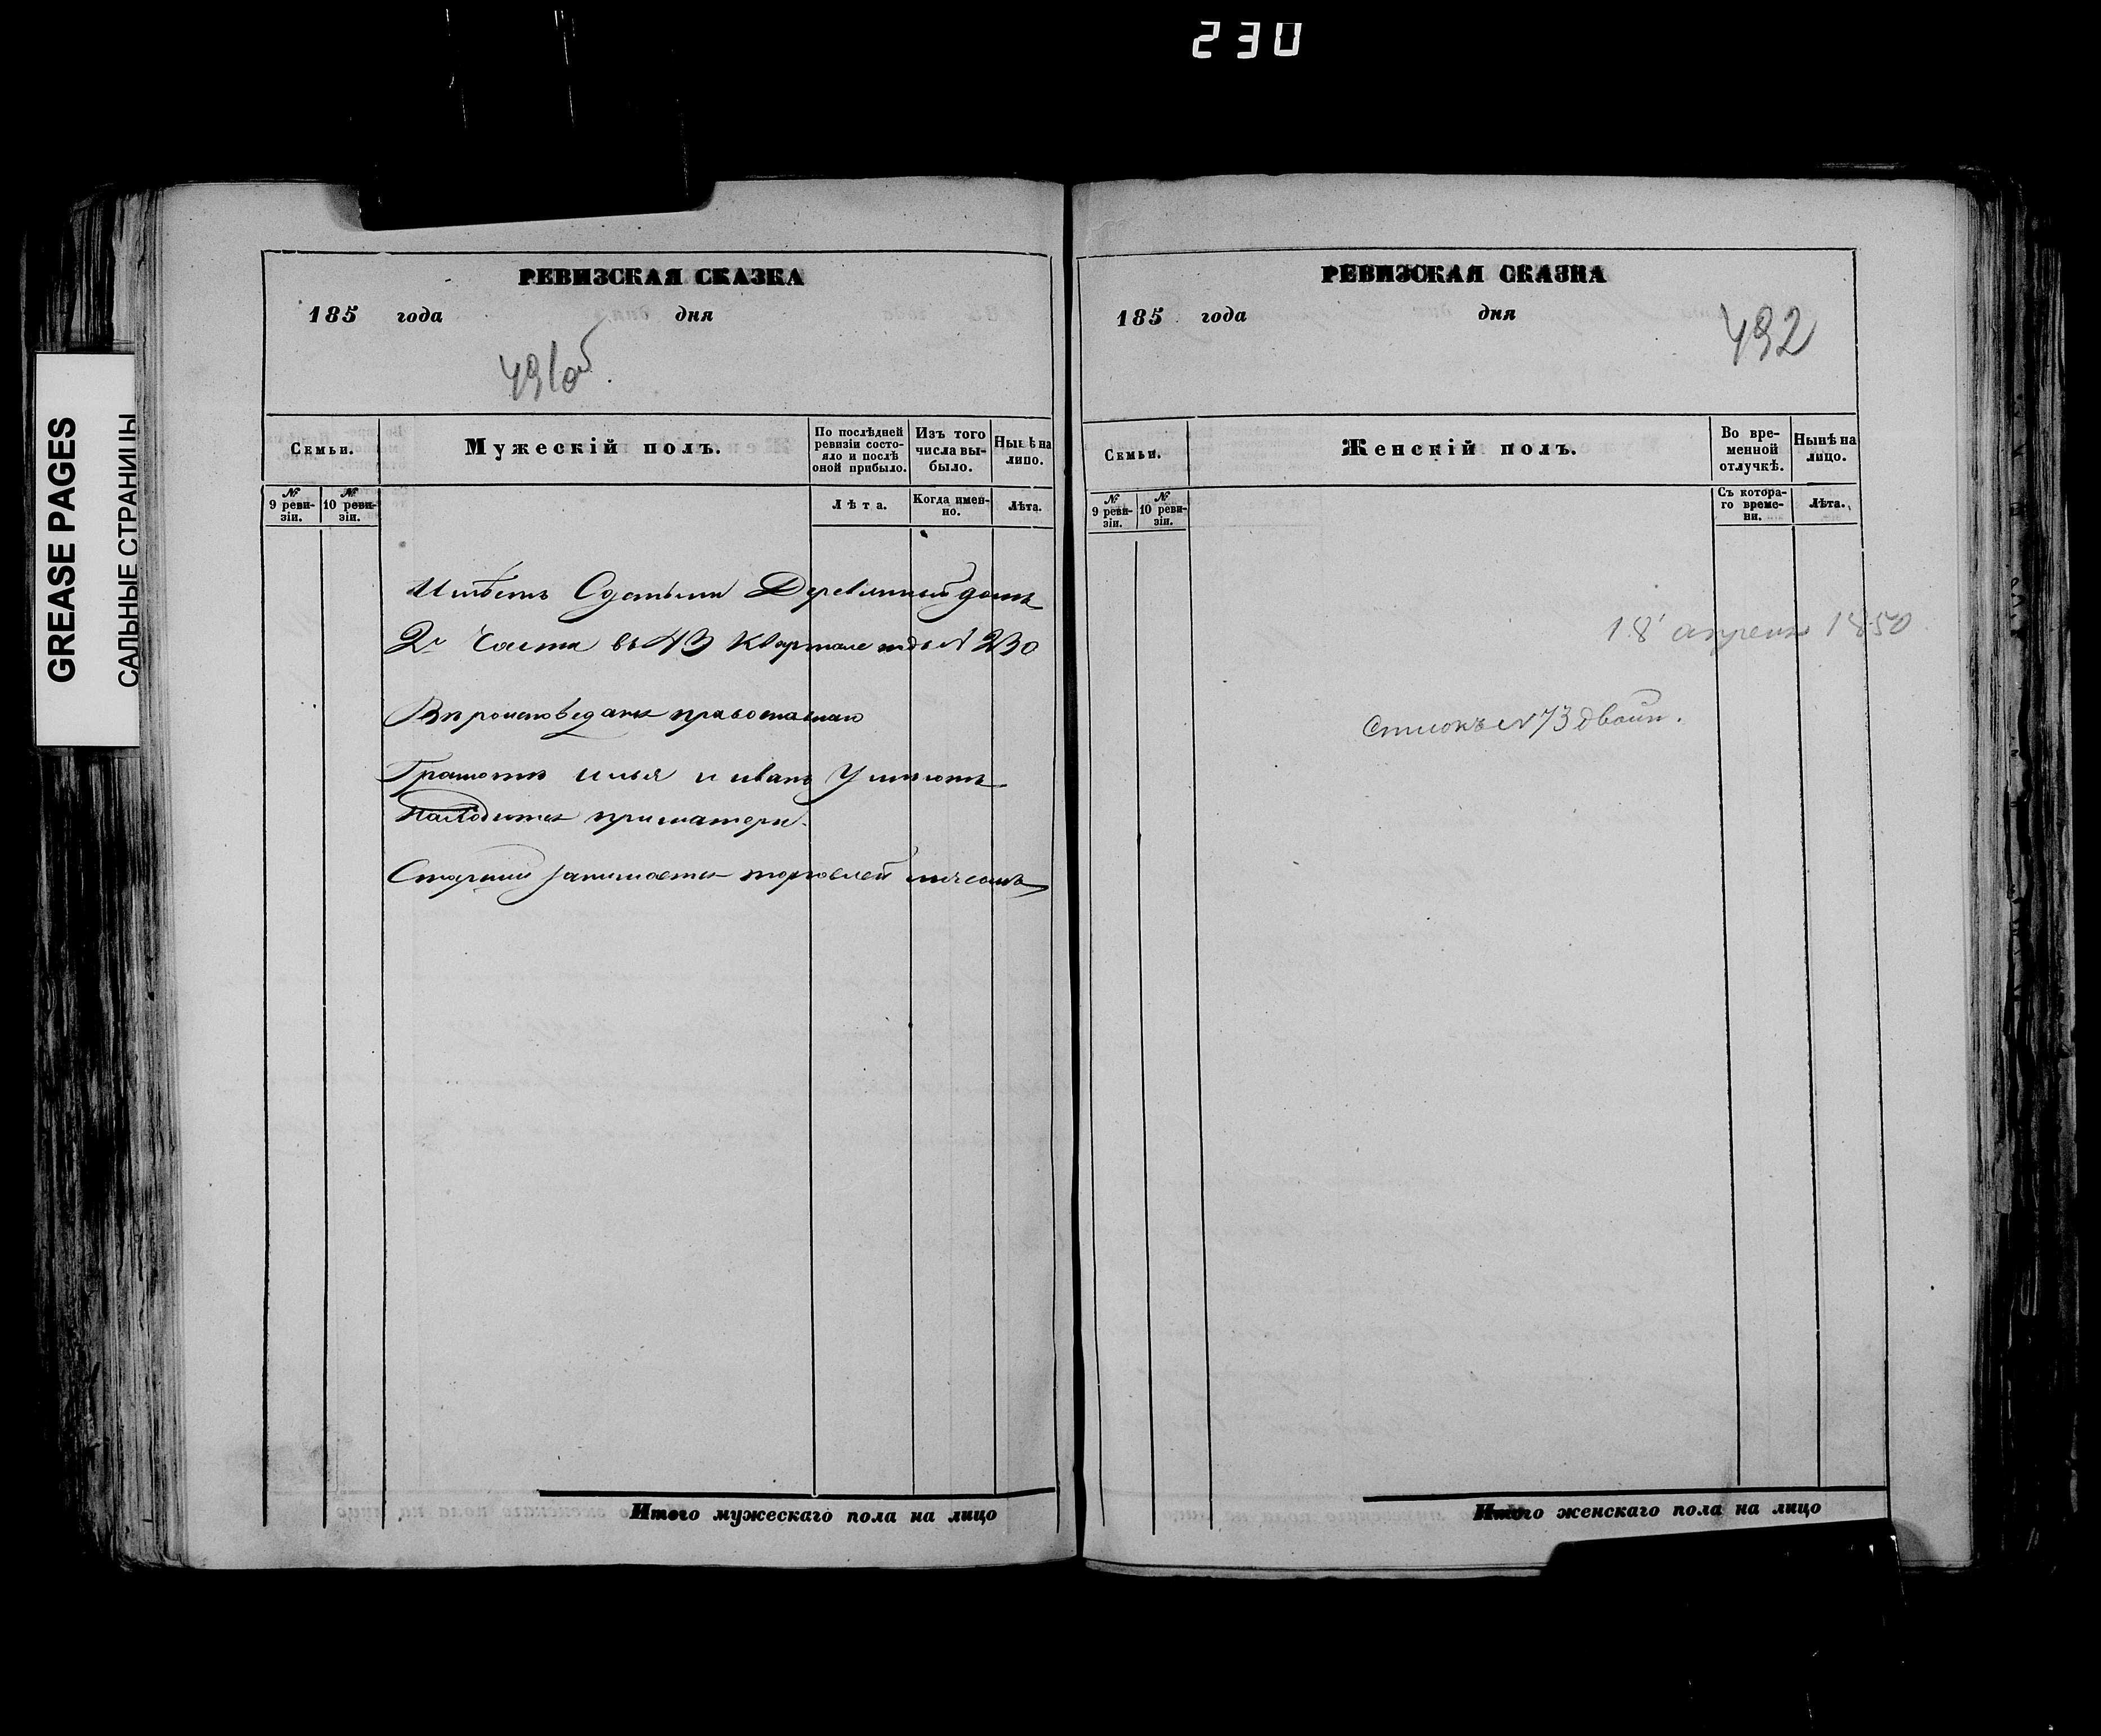 230
GREASE PAGES
САЛЬНЫЕ СТРАНИЦЫ
РЕВИЗСКАЯ СКАЗКА
185 года дня
491об.
Семьи.
Мужескій полъ.
По послѣдней ревизіи состо-
яло и послѣ оной прибыло.
Изъ того числа вы-
было.
Нынѣ на лицо.
№ 9 реви-
зіи.
№ 10 реви-
зіи.
Лѣта.
Когда имен-
но.
Лѣта.
Имѣетъ Сдетьми Деревянный домъ
2й Части въ 43 Квартале подъ № 230
Вероисповедания православнаго
Грамоте илья и иванъ Умѣютъ
находится приматери.
Старший занимается торговлей мясомъ
Итого мужескаго пола на лицо
РЕВИЗСКАЯ СКАЗКА
185 года дня
492
Семьи.
Женскій полъ.
Во вре-
менной отлучкѣ.
Нынѣ на лицо.
№ 9 реви-
зіи.
№ 10 реви-
зіи.
Съ котора-
го време-
ни.
Лѣта.
18 апреля 1850
Списокъ № 73 двойн.
Итого женскаго пола на лицо